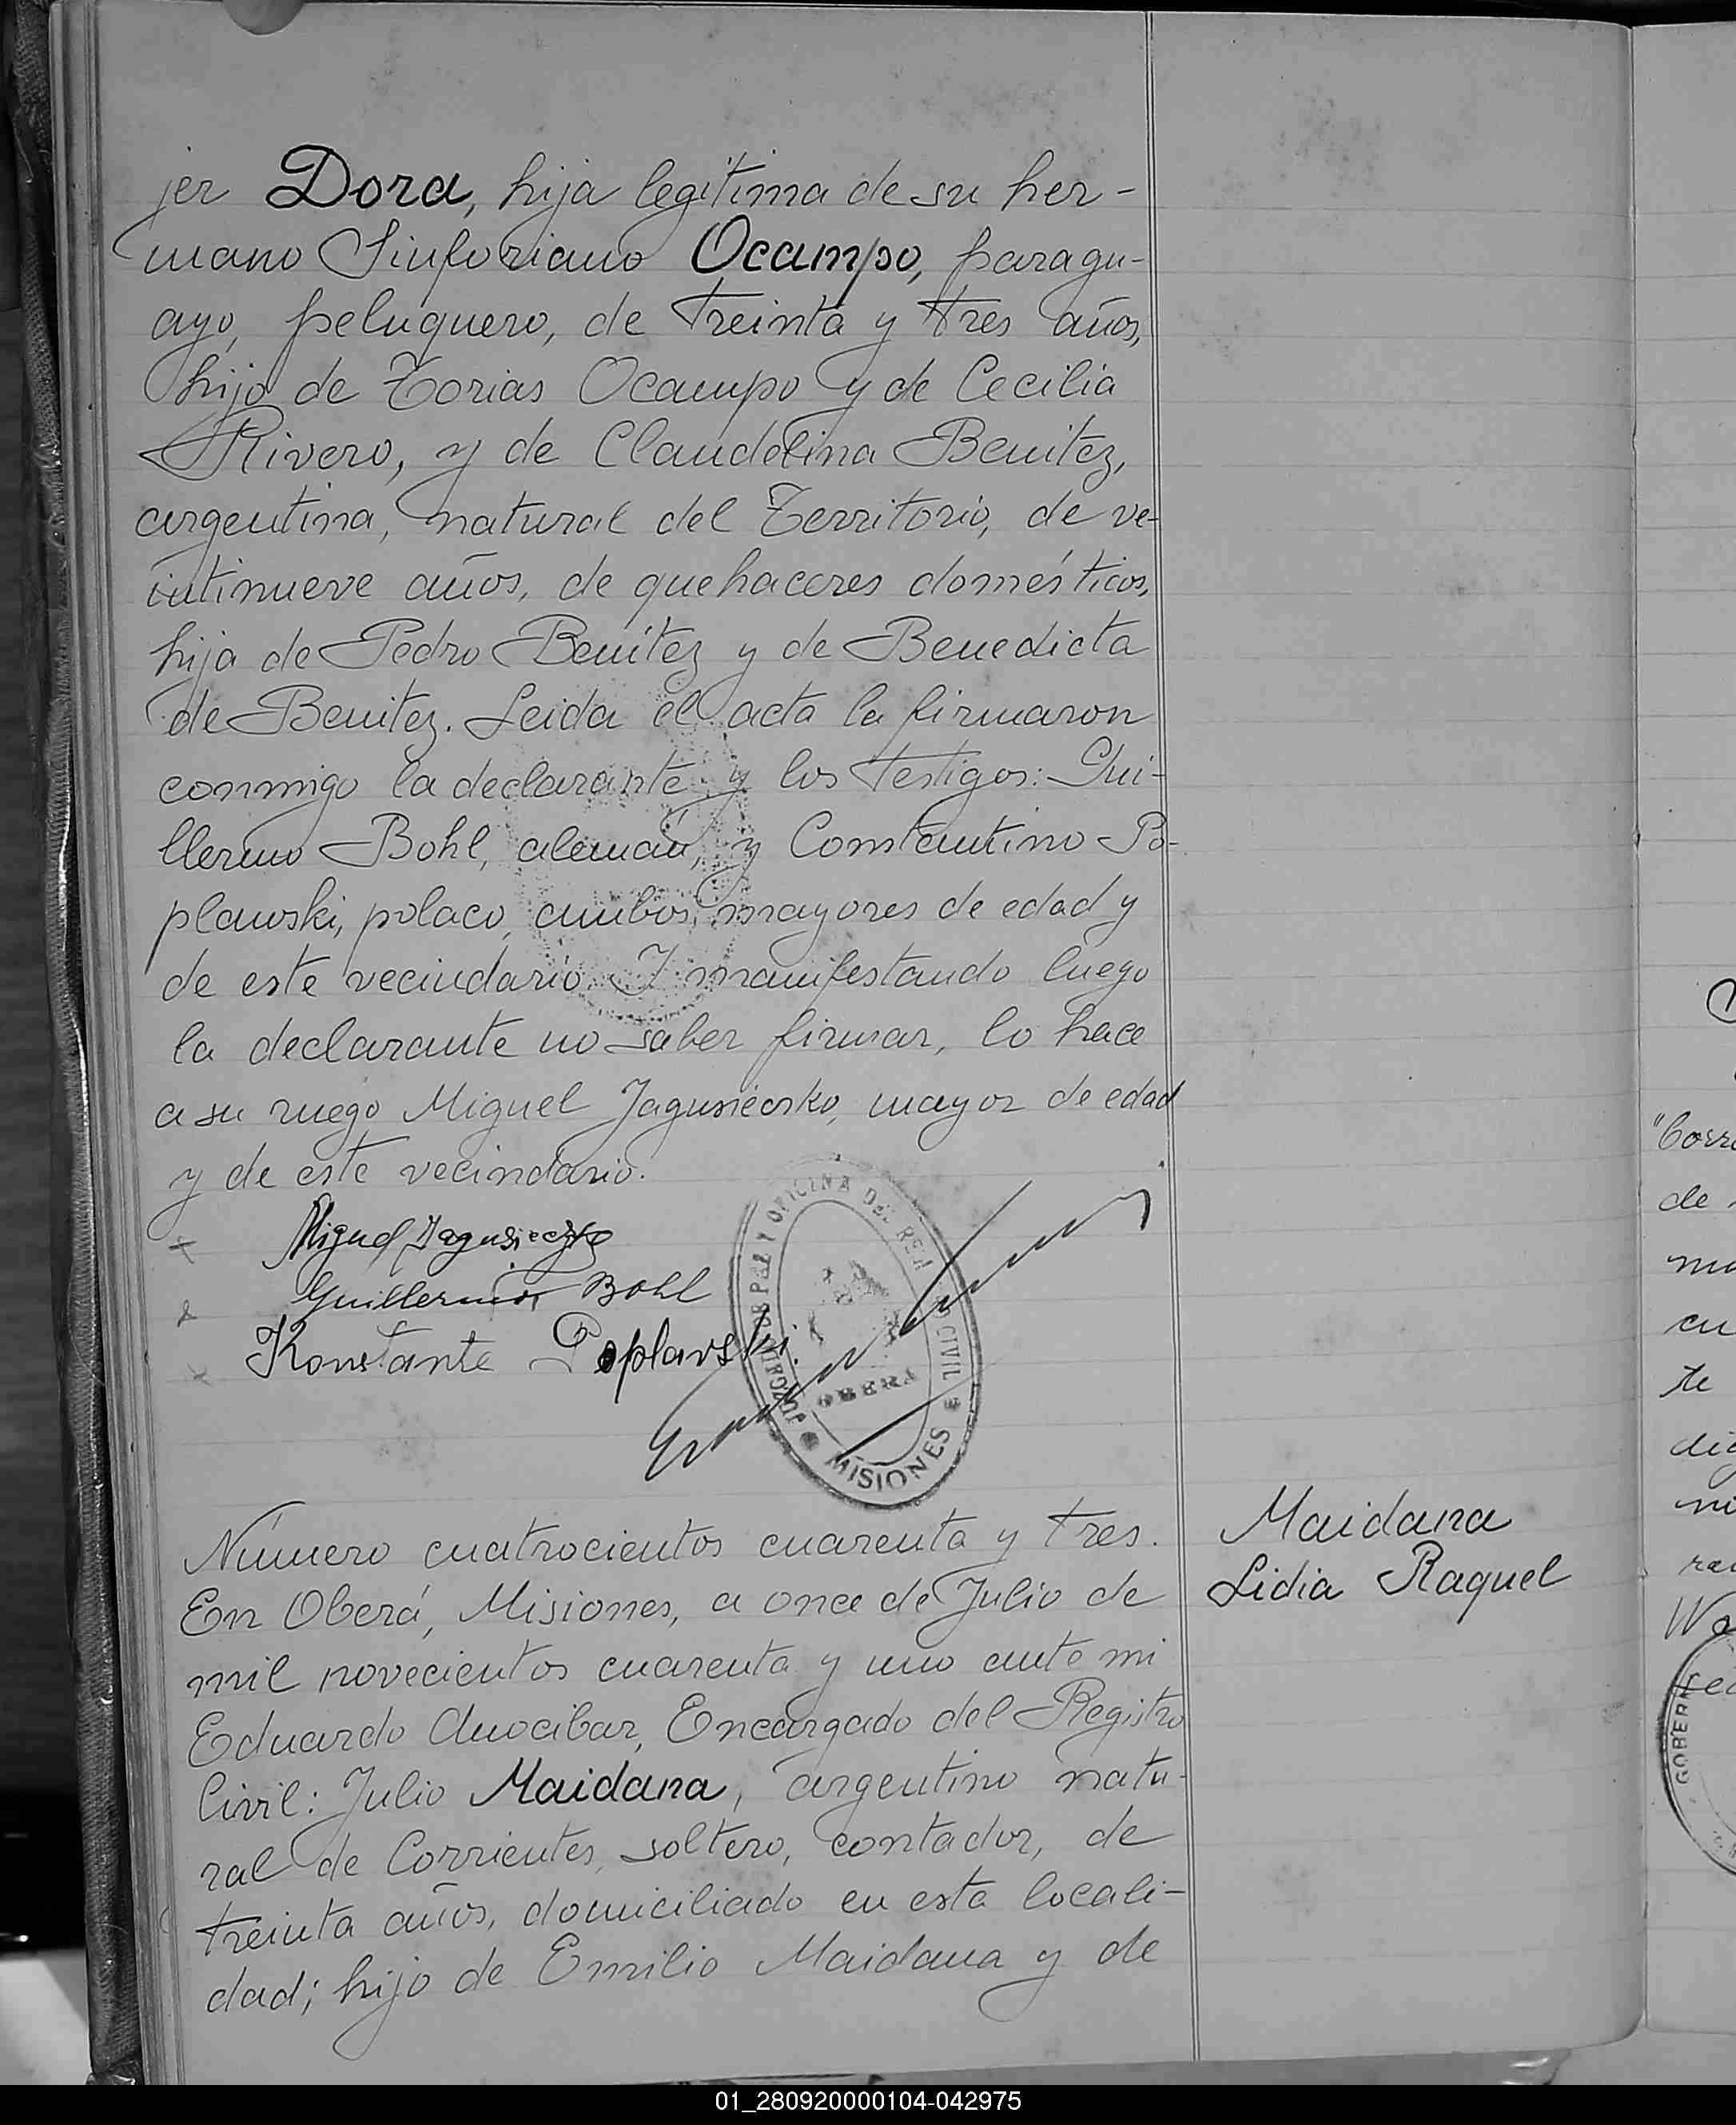 jer Dora, hija legitima de su her-
mano Sinforiano Ocampo, paragu-
ayo, peluquero, de treinta y tres años,
hijo de Torias Ocampo y de Cecilia
Rivero, y de Claudelina Benitez,
argentina, natural del Territorio, de ve-
intinueve años, de quehaceres domésticos,
hija de Pedro Benítez y de Benedicta
de Benitez. Leida el acta la firmaron
conmigo la declarante y los testigos: Gui-
llermo Bohl, alemán, y Constantino Po-
plawski, polaco, ambos mayores de edad y
de este vecindario. Y manifestando luego
la declarante no saber firmar, lo hace
a su ruego Miguel Jagusiecsko, mayor de edad
y de este vecindario.
Miguel Jagusieczko
Guillermo Bohl
Konstante Poplavski.
JUZGADO DE PAZ Y OFICINA DEL REG. CIVIL
OBERA
MISIONES
Número cuatrocientos cuarenta y tres.
En Oberá, Misiones, a once de Julio de
mil novecientos cuarenta y uno ante mi
Eduardo Anocibar, Encargado del Registro
Civil: Julio Maidana, argentino natu-
ral de Corrientes, soltero, contador, de
treinta años, domiciliado en esta locali-
dad; hijo de Emilio Maidana y de
Maidana
Lidia Raquel
de
te
GOBERN
01_280920000104-042975